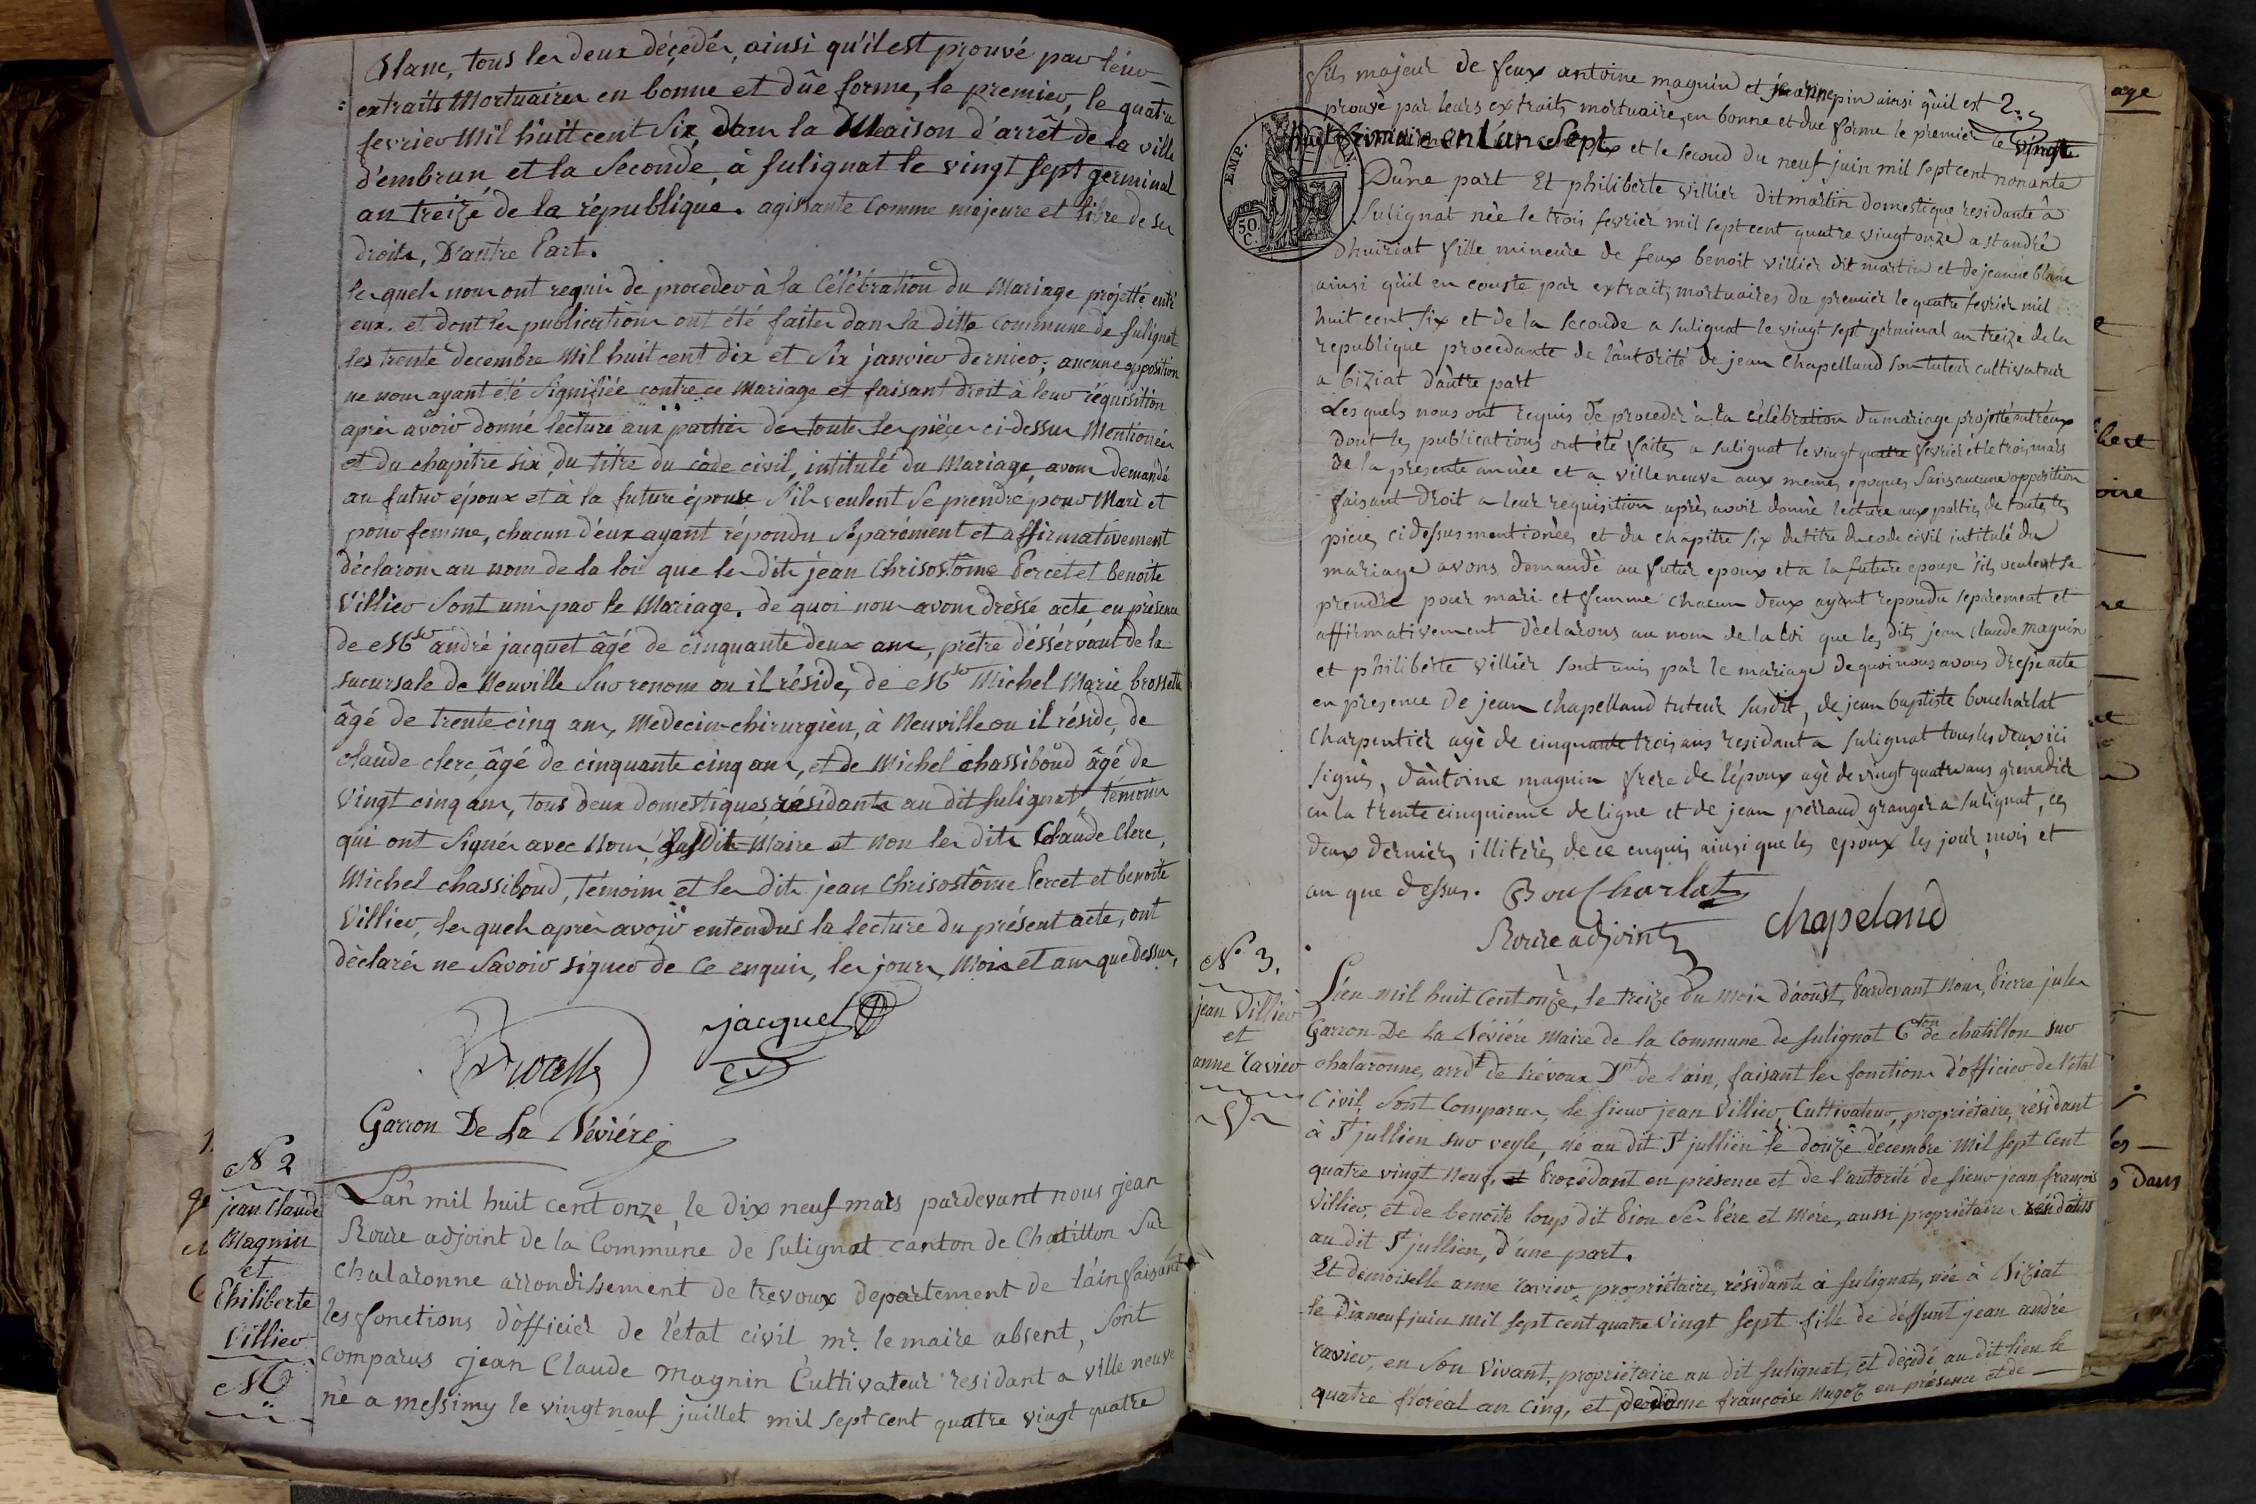 Blanc, tous les deux décédés, ainsi qu'il est prouvé par leurs
extraits Mortuaires en bonne et dûe forme, le premier, le quatre
fevrier Mil huit cent Six, dans la Maison d'arrêt de la ville
d'embrun, et la Seconde, à Sulignat le vingt sept germinal
an treize de la république. agissante comme majeure et libre de ses
droits, D'autre Part.
lesquels nous ont requis de procéder à la Célébration du Mariage projetté entre
eux. et dont les publications ont été faites dans la ditte Commune de Sulignat
les trente decembre Mil huit cent dix et Six janvier dernier; aucune opposition
ne nous ayant été Signifiée contre ce Mariage et faisant droit à leur réquisition
après avoir donné lecture aux parties de toutes les pièces ci-dessus Mentionées
et du chapitre Six du titre du code civil, intitulé du Mariage, avons demandé
au futur époux et à la future épouse S'ils veulent Se prendre pour Mari et
pour femme, chacun d'eux ayant répondu Séparément et affirmativement
déclarons au nom de la loi que les dits jean Chrisostôme Percet et Benoite
Villier Sont unis par le Mariage. de quoi nous avons dréssé acte, en présence
de Mr andré jacquet âgé de cinquante deux ans, prêtre déssérvant de la
sucursale de Neuville Sur renom ou il réside, de Mr Michel Marie brossette
âgé de trente cinq ans, Medecin-chirurgien, à Neuville ou il réside, de
claude clerc âgé de cinquante cinq ans, et de Michel chassiboud âgé de
vingt cinq ans, tous deux domestiques, résidants au dit Sulignat, témoins
qui ont Signés avec Nous, Susdit Maire et non les dits Claude Clerc,
Michel chassiboud, témoins et les dits jean Chrisostôme Percet et benoite
Villier, lesquels après avoir entendus la lecture du présent acte, ont
dèclarés ne Savoir signer de ce enquis, les jours, Mois et an que dessus,
jacquet
Garron De La Névière
N 2
jean Claude
Magnin
et
Philiberte
Villier
M
L'an mil huit cent onze, le dix neuf mars pardevant nous jean
Roure adjoint de la Commune de Sulignat canton de Chatillon Sur
chalaronne arrondissement de trevoux departement de l'ain faisant
les fonctions d'officier de l'état civil, mr. le maire absent, Sont
comparus jean Claude magnin Cultivateur residant a ville neuve
né a messimy le vingt neuf juillet mil sept cent quatre vingt quatre
fils majeur de feux antoine magnin et jeanne pin ainsi qu'il est
2.
prouvé par leurs extraits mortuaire, en bonne et due forme le premier le vingt
huit frimaire en L'an Sept et le second du neuf juin mil sept cent nonante
EMP.
50 C.
D'une part Et philiberte villier dit martin domestique residante à
Sulignat née le trois fevrier mil sept cent quatre vingt onze a st andré
d'huiriat fille mineure de feux benoit villier dit martin et de jeanne blanc
ainsi qu'il en conste par extraits mortuaires du premier le quatre fevrier mil
huit cent six et de la seconde a sulignat le vingt sept germinal an treize de la
republique procedante de l'autorité de jean Chapelland son tuteur cultivateur
a biziat d'autre part
Les quels nous ont requis de proceder à la célébration du mariage projetté entr'eux
dont les publications ont été faites a sulignat le vingt quatre fevrier et le trois mars
de la presente année et a villeneuve aux mêmes epoques sans aucune opposition
faisant droit a leur requisition après avoir donné lecture aux parties de toutes les
pieces ci dessus mentionées et du chapitre six du titre du code civil intitulé du
mariage avons demandé au futur epoux et a la future epouse s'ils veulent se
prendre pour mari et femme chacun d'eux ayant repondu separement et
affirmativement déclarons au nom de la loi que les dits jean claude magnin
et philiberte villier sont unis par le mariage de quoi nous avons dressé acte
en presence de jean chapelland tuteur susdit, de jean baptiste boucharlat
charpentier agé de cinquante trois ans residant a sulignat tous les deux ici
signés, d'antoine magnin frere de l'époux agé de vingt quatre ans grenadier
en la trente cinquieme de ligne et de jean perraud granger a sulignat, ces
deux derniers illiterés de ce enquis ainsi que les epoux les jour mois et
an que dessus. Boucharlat
chapeland
Roure adjoint
N 3.
jean Villier
et
anne ravier
L'an mil huit cent onze, le treize du mois d'aoust, Pardevant Nous, Pierre jules
Garron De La Névière Maire de la Commune de Sulignat Cton de chatillon sur
chalaronne, arrdt de trévoux Dpt de l'ain, faisant les fonctions d'officier de l'état
Civil, Sont Comparus, le sieur jean Villier Cultivateur, propriétaire, résidant
à St jullien sur veyle, né au dit St jullien le douze decembre mil sept cent
quatre vingt neuf, et Procédant en présence et de l'autorité de sieur jean françois
Villier, et de benoite loup dit Pion Ses Pére et Mére, aussi propriétaires résidants
au dit St jullien, d'une part.
Et demoiselle anne ravier, propriétaire, résidante à Sulignat, née à Biziat
le Dixneuf juin mil sept cent quatre vingt sept fille de déffunt jean andré
ravier, en Son Vivant, propriétaire au dit Sulignat, et décédé au dit lieu le
quatre floréal an cinq, et de dame françoise Nugoz en présence et de